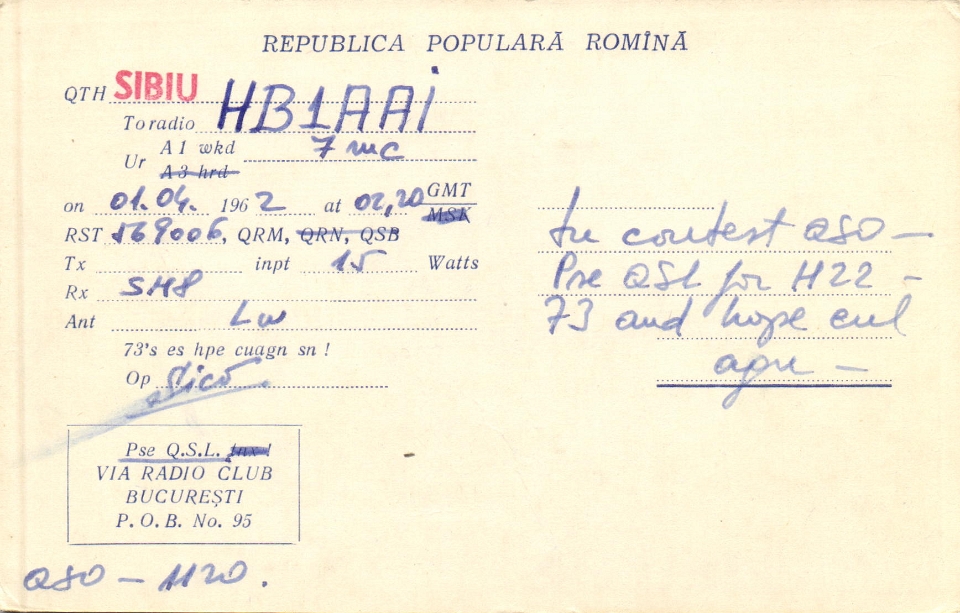 REPUBLICA POPULARĂ ROMÎNĂ
QTH SIBIU
To radio HB1AAI
Ur A1 wkd 7 mc
A3 hrd
on 01.04. 1962 at 02,20 GMT
MSK
RST 569006, QRM, QRN, QSB
Tx inpt 15 Watts
Rx SH8
Ant Lw
73's es hpe cuagn sn !
Op
Pse Q.S.L. tnx !
VIA RADIO CLUB
BUCUREȘTI
P.O.B. No. 95
QSO — 1120.
tu contest QSO —
Pse QSL for H22 —
73 and hope cul
agn —